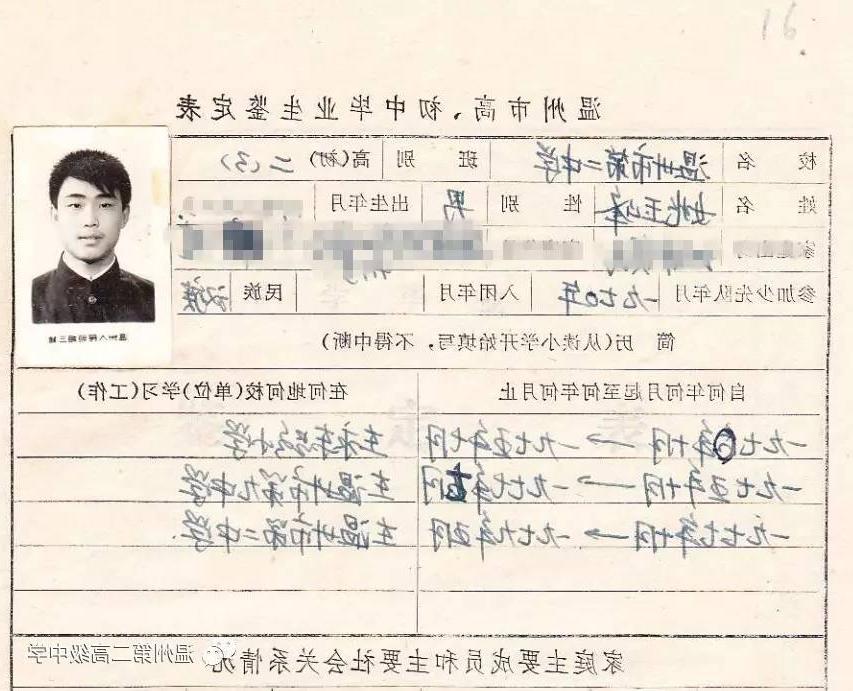 温州市高、初中毕业生鉴定表
校名 温州市第二中学 班别 高(初)二(3)
姓名 姚玉峰 性别 男 出生年月
参加少先队年月 一九七〇年 入团年月 民族 汉族
简 历(从读小学开始填写，不得中断)
自何年何月起至何年何月止 在何地何校(单位)学习(工作)
一九七〇年十月 → 一九七五年七月 小学
一九七五年十月 → 一九七七年 在温州市第九中学
一九七七年十月 → 一九七九年五月 在温州市第二中学
家庭主要成员和主要社会关系情况
温州第二高级中学